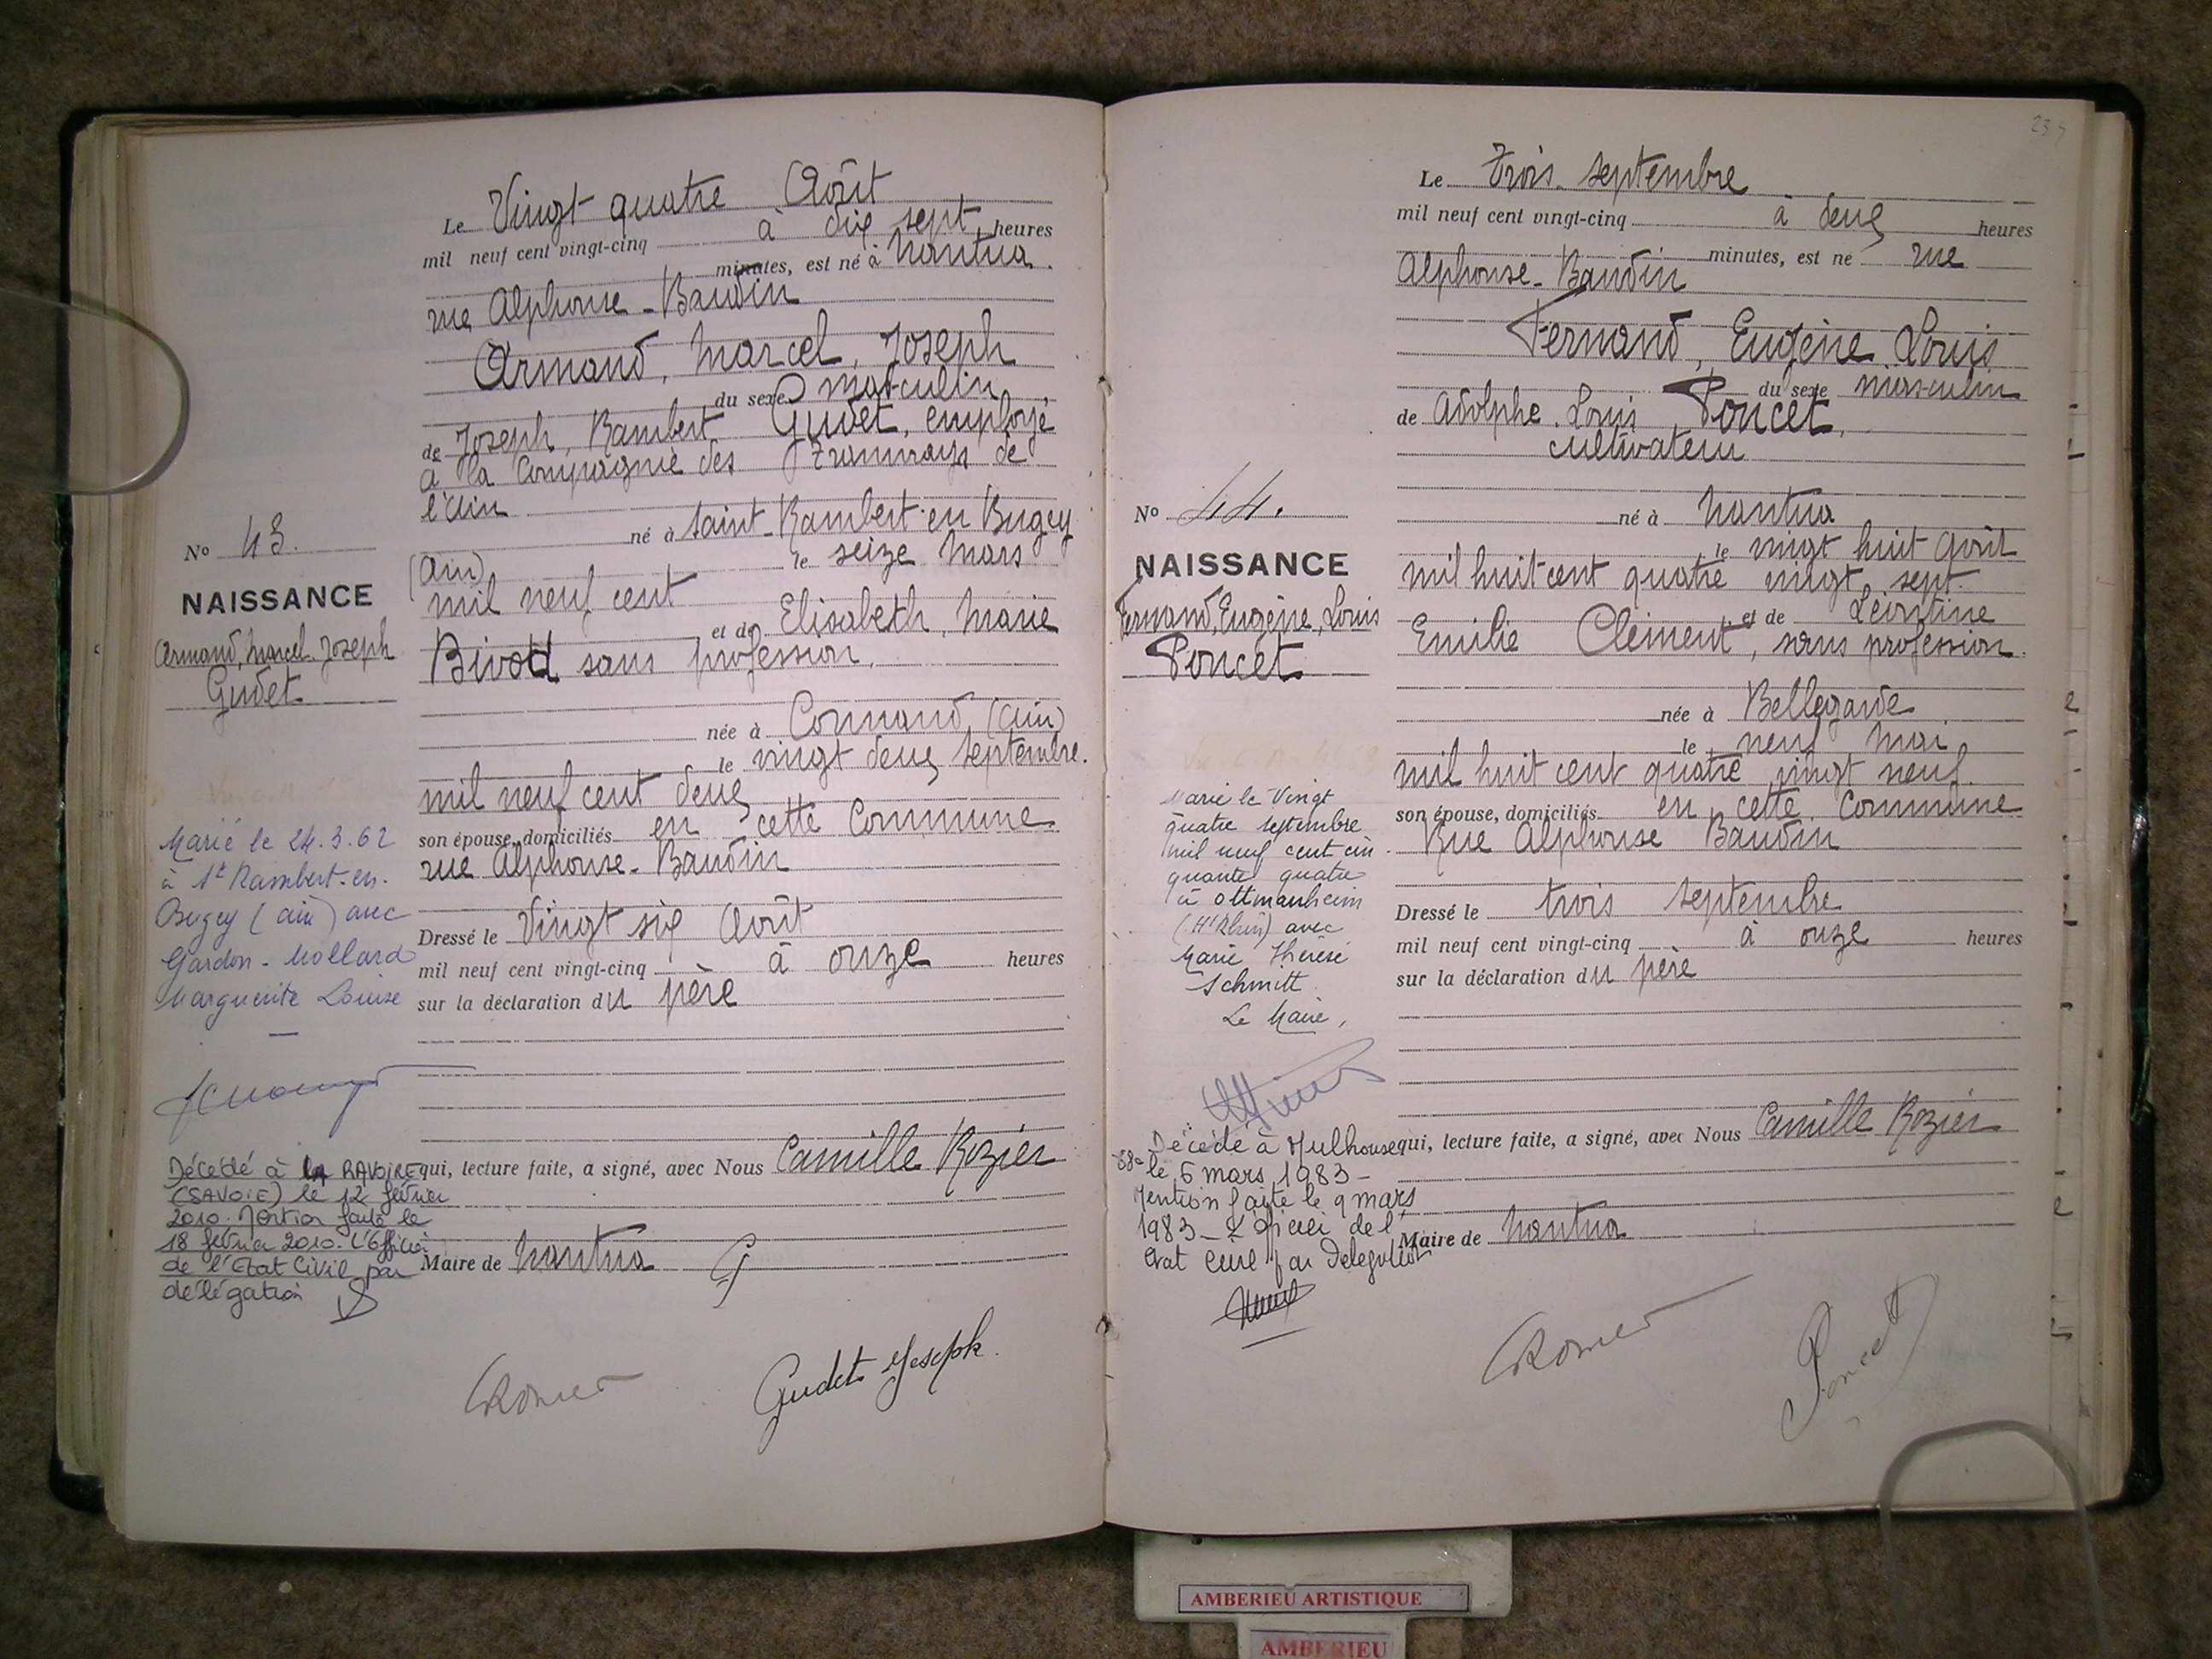 Le Vingt quatre Août
mil neuf cent vingt-cinq à dix sept heures
minutes, est né à Nantua.
rue Alphonse-Baudin
Armand, Marcel, Joseph
du sexe masculin
de Joseph, Rambert Gudet, employé
à la Compagnie des Tramways de
l'Ain
né à Saint-Rambert-en Bugey
(Ain) le seize Mars
mil neuf cent
et de Elisabeth, Marie
sans profession,
née à Connand (Ain)
le vingt deux septembre.
mil neuf cent deux
son épouse, domiciliés en cette Commune
rue Alphonse-Baudin
Dressé le Vingt six Août
mil neuf cent vingt-cinq à onze heures
sur la déclaration du père
qui, lecture faite, a signé, avec Nous Camille Rozier
Maire de Nantua
Gudet Joseph.
No 43.
NAISSANCE
Armand, Marcel, Joseph
Gudet
Marié le 24.3.62
à St Rambert-en-
Bugey (Ain) avec
Gardon-Mollard
Marguerite Louise
Décédé à LA RAVOIRE
(SAVOIE) le 12 février
2010. Mention faite le
18 février 2010. L'Officier
de l'Etat Civil par
délégation
234
Le Trois septembre
mil neuf cent vingt-cinq à deux heures
minutes, est né rue
Alphonse-Baudin
Fernand, Eugène, Louis
du sexe masculin
de Adolphe, Louis Poncet,
cultivateur
né à Nantua
le vingt huit Août
mil huit cent quatre vingt sept.
et de Léontine
Emilie Clément, sans profession.
née à Bellegarde
le neuf mai
mil huit cent quatre vingt neuf.
son épouse, domiciliés en cette Commune
Rue Alphonse Baudin
Dressé le trois septembre
mil neuf cent vingt-cinq à onze heures
sur la déclaration du père
qui, lecture faite, a signé, avec Nous Camille Rozier
Maire de Nantua
Poncet
No 44.
NAISSANCE
Fernand, Eugène, Louis
Poncet
Marié le Vingt
quatre septembre
mil neuf cent cin-
quante quatre
à Ottmarsheim
(Ht Rhin) avec
Marie Thérèse
Schmitt
Le Maire,
Décédé à Mulhouse
68 - le 5 mars 1983 -
Mention faite le 9 mars
1983 - L'Officier de l'
Etat Civil par Délégation
AMBERIEU ARTISTIQUE
AMBERIEU